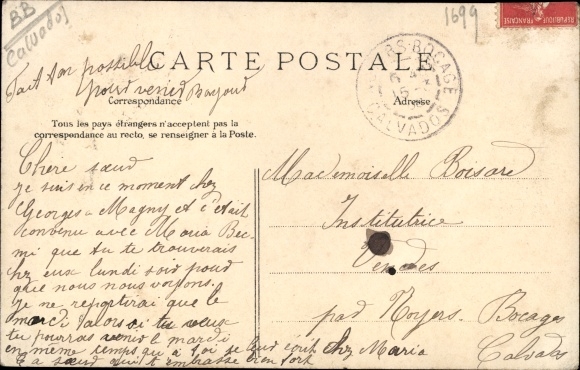 BB
Calvados
1699
FRANÇAISE
Fait ton possible
pour venir
CARTE POSTALE
Correspondance
Adresse
RS-BOCAGE
CALVADOS
Tous les pays étrangers n'acceptent pas la
correspondance au recto, se renseigner à la Poste.
Chere sœur
je suis en ce moment chez
Georges a Magny et c'était
convenu avec Maria
mi que tu te trouverais
chez eux lundi soir pour
que nous nous voyons.
Je ne repartirai que le
mardi alors si tu veux
tu pourras venir le mardi
en même temps qu'à toi je leur écrit
Ta sœur qui t'embrasse bien fort
Mademoiselle Bocsard
Institutrice
Vendes
par Noyers-Bocages
chez Maria
Calvados